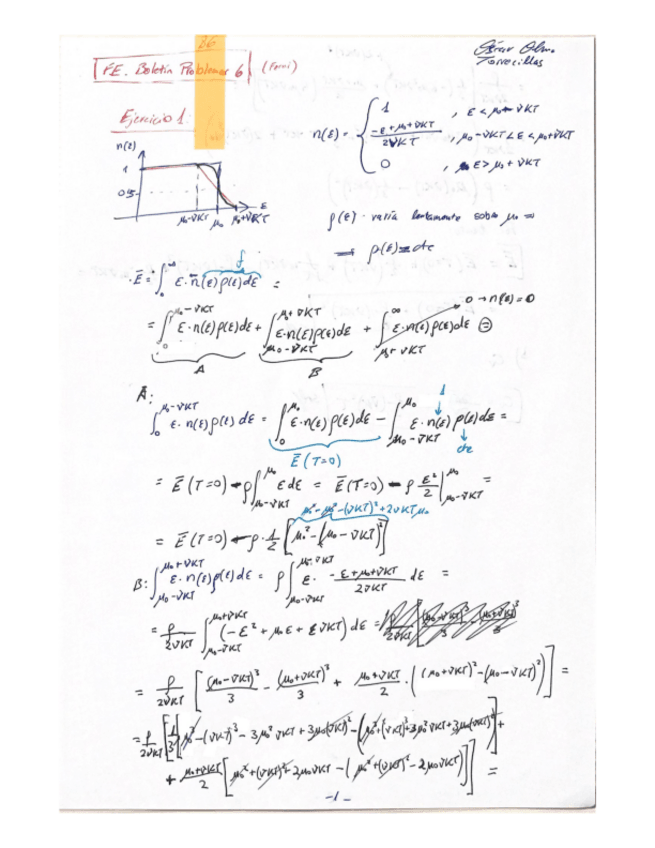 B6
F.E. Boletín Problemas 6 (Fermi)
César Olmo
Torrecillas
Ejercicio 1:
n(ε) = { 1 , ε < μ₀ - νKT
(-ε + μ₀ + νKT)/(2νKT) , μ₀ - νKT < ε < μ₀ + νKT
0 , ε > μ₀ + νKT
n(ε)
1
0.5
μ₀-νKT μ₀ μ₀+νKT ε
ρ(ε) varía lentamente sobre μ₀ ⇒
⇒ ρ(ε) = cte
· Ē = ∫₀^∞ ε · n(ε) ρ(ε) dε =
= ∫₀^{μ₀-νKT} ε · n(ε) ρ(ε) dε + ∫_{μ₀-νKT}^{μ₀+νKT} ε · n(ε) ρ(ε) dε + ∫_{μ₀+νKT}^∞ ε · n(ε) ρ(ε) dε =
0 → n(ε) = 0
A B
A:
∫₀^{μ₀-νKT} ε · n(ε) ρ(ε) dε = ∫₀^{μ₀} ε · n(ε) ρ(ε) dε - ∫_{μ₀-νKT}^{μ₀} ε · n(ε) ρ(ε) dε =
1
Ē(T=0) cte
= Ē(T=0) - ρ ∫_{μ₀-νKT}^{μ₀} ε dε = Ē(T=0) - ρ ε²/2 |_{μ₀-νKT}^{μ₀} =
μ₀² - μ₀² - (νKT)² + 2νKTμ₀
= Ē(T=0) - ρ · 1/2 [μ₀² - (μ₀ - νKT)²]
B: ∫_{μ₀-νKT}^{μ₀+νKT} ε · n(ε) ρ(ε) dε = ρ ∫_{μ₀-νKT}^{μ₀+νKT} ε · (-ε + μ₀ + νKT)/(2νKT) dε =
= ρ/(2νKT) ∫_{μ₀-νKT}^{μ₀+νKT} (-ε² + μ₀ε + ενKT) dε =
= ρ/(2νKT) [ (μ₀-νKT)³/3 - (μ₀+νKT)³/3 + (μ₀+νKT)/2 · ((μ₀+νKT)² - (μ₀-νKT)²) ] =
= ρ/(2νKT) [ 1/3 [ μ₀³ - (νKT)³ - 3μ₀²νKT + 3μ₀(νKT)² - (μ₀³ + (νKT)³ + 3μ₀²νKT + 3μ₀(νKT)²) ] +
+ (μ₀+νKT)/2 [ μ₀² + (νKT)² + 2μ₀νKT - (μ₀² + (νKT)² - 2μ₀νKT) ] ] =
-1-